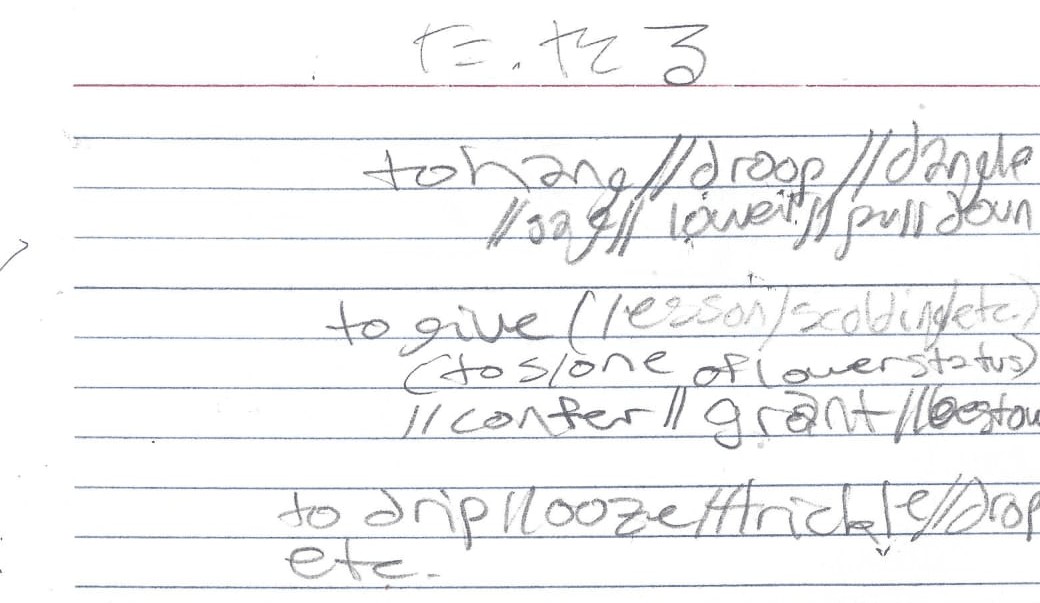 た.れる
to hang//droop//dangle
//sag//lower//pull down
to give (lesson/scolding/etc.)
(to s/one of lower status)
//confer//grant//bestow
to drip//ooze//trickle//drop
etc.